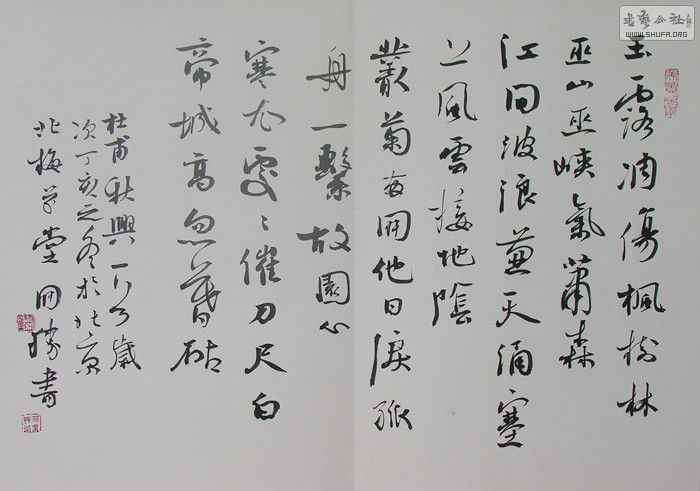 玉露凋傷楓樹林
巫山巫峽氣蕭森
江間波浪兼天涌塞
上風雲接地陰
叢菊兩開他日淚孤
舟一繫故園心
寒衣處〻催刀尺白
帝城高急暮砧
杜甫秋興一首歲
次丁亥之冬於北京
北梅草堂勝書
书艺公社
WWW.SHUFA.ORG